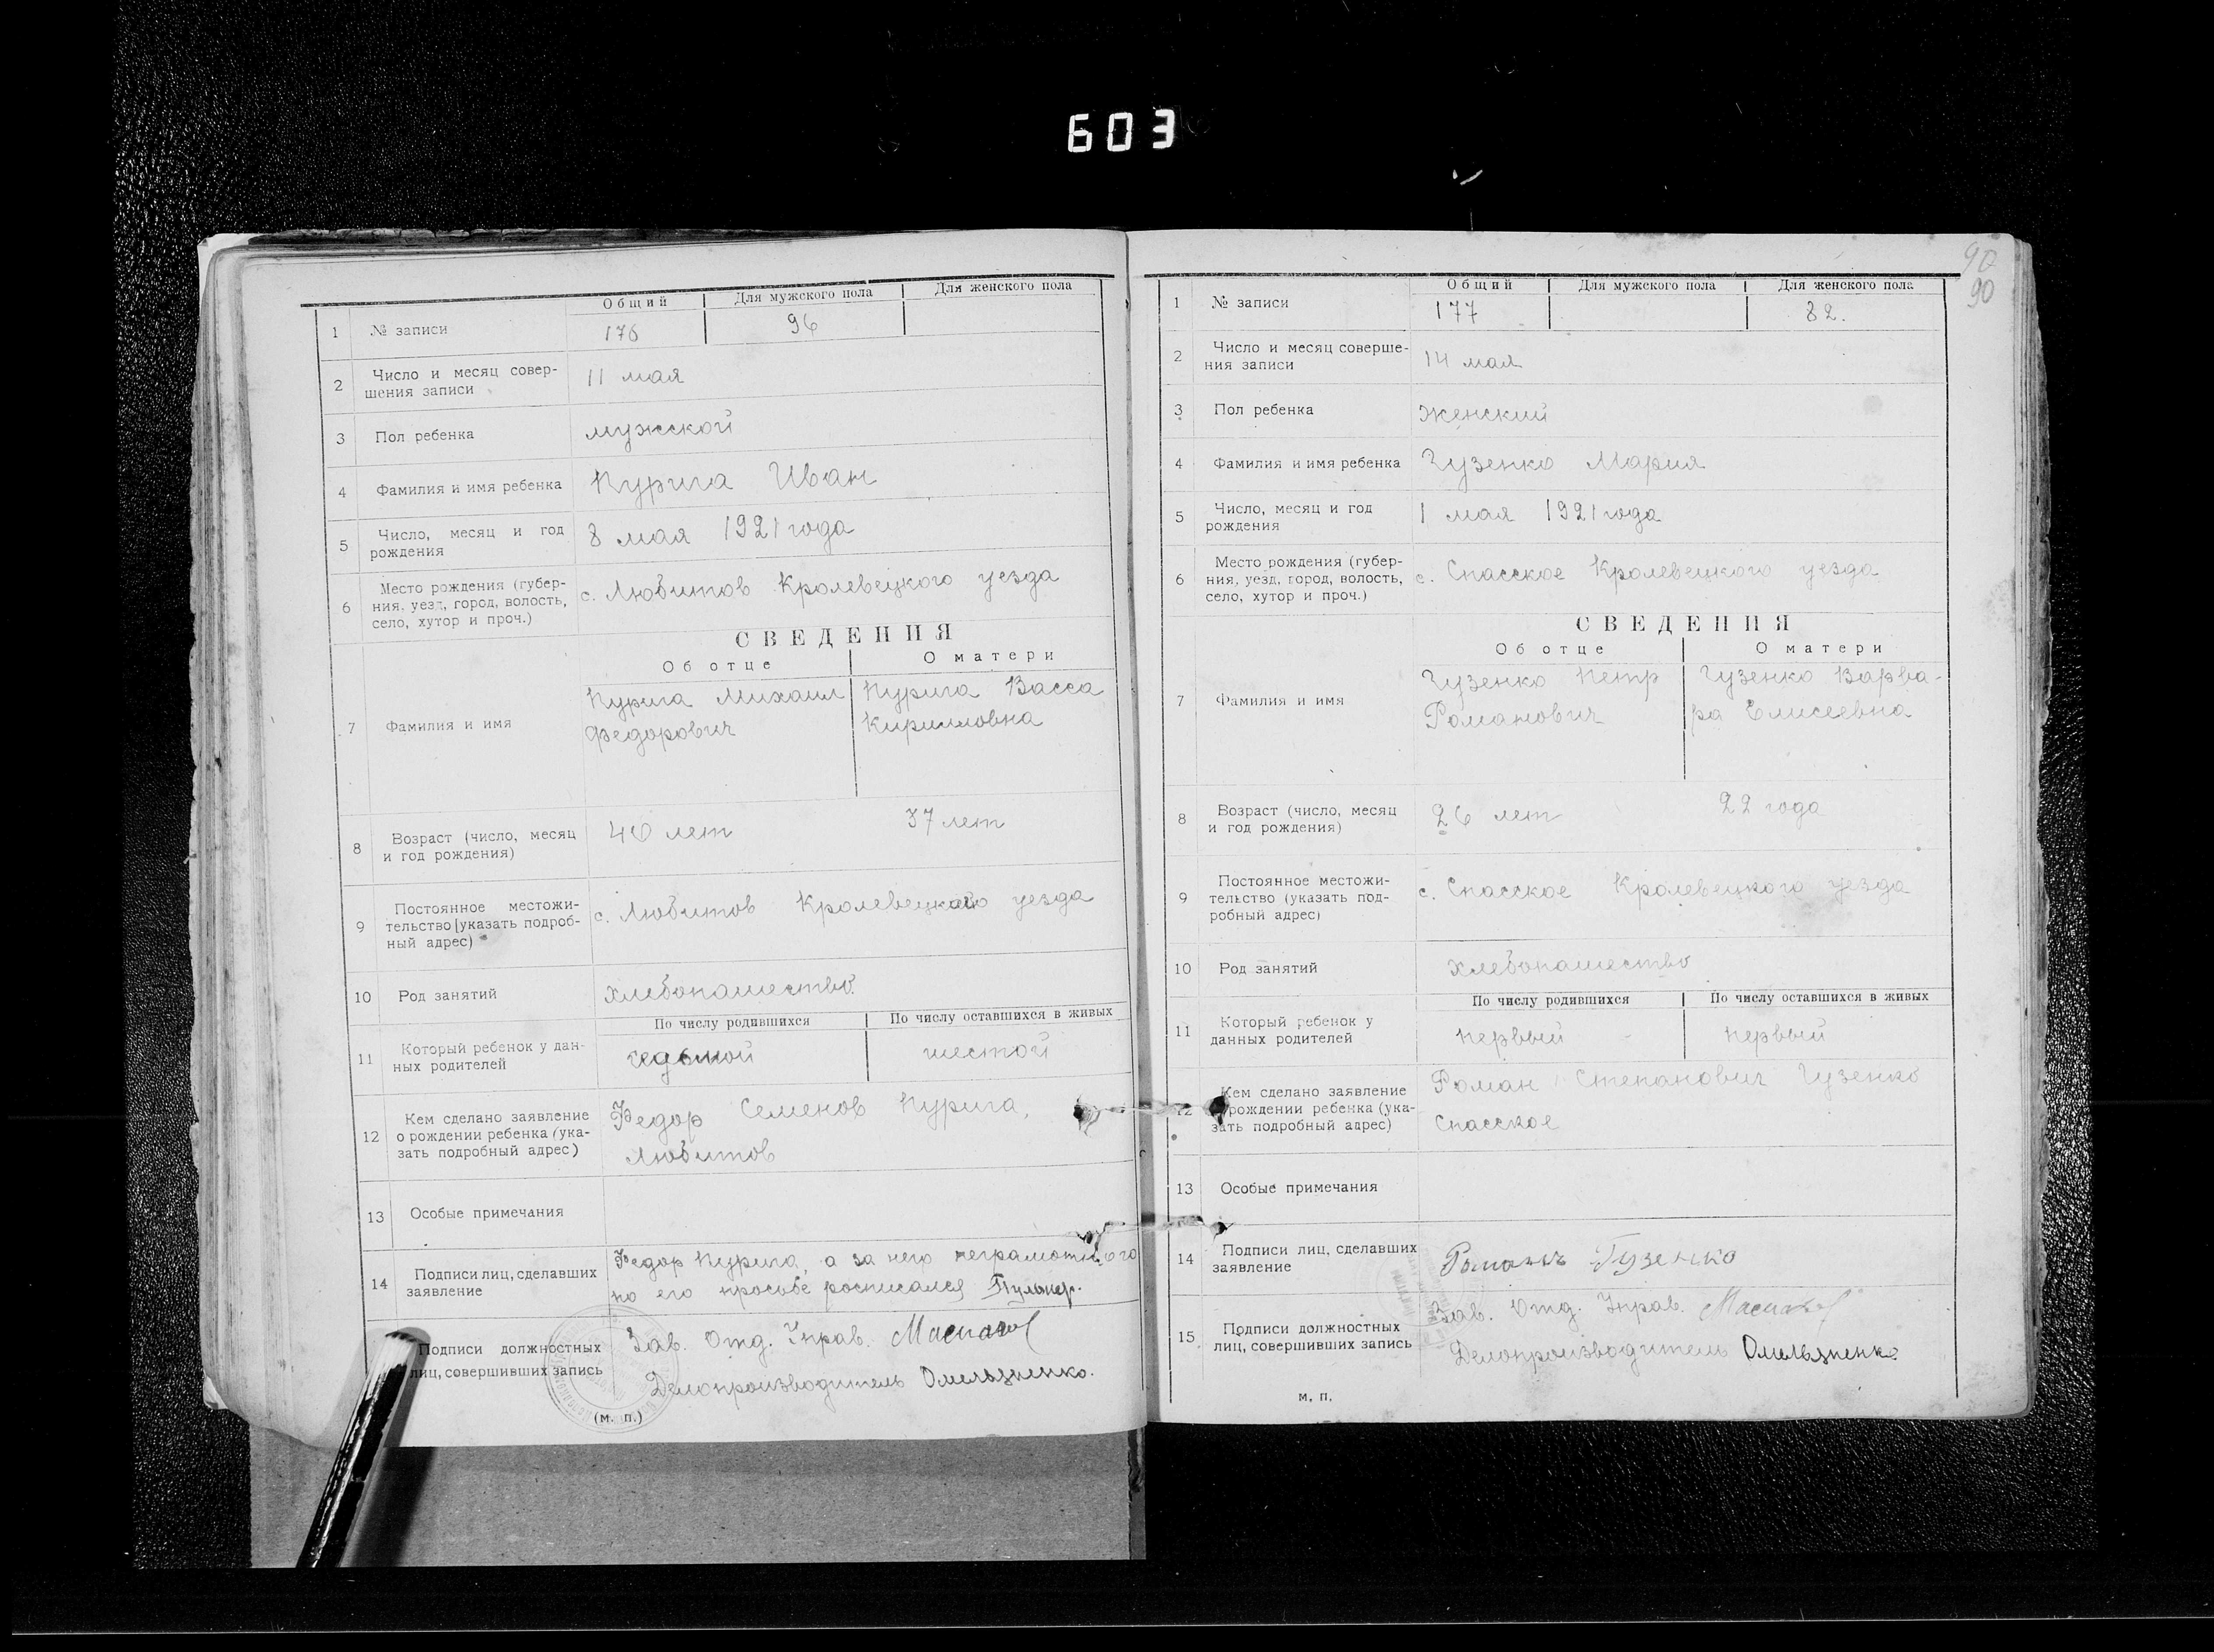 603
90
90
Общий Для мужского пола Для женского пола
1 № записи 176 96
2 Число и месяц совер-
шения записи 11 мая
3 Пол ребенка мужской
4 Фамилия и имя ребенка Курига Иван
5 Число, месяц и год
рождения 8 мая 1921 года
6 Место рождения (губер-
ния, уезд, город, волость,
село, хутор и проч.) с. Любитов Кролевецкого уезда
СВЕДЕНИЯ
Об отце О матери
7 Фамилия и имя
Курига Михаил
Федорович
Курига Васса
Кирилловна
8 Возраст (число, месяц
и год рождения) 40 лет 37 лет
9 Постоянное местожи-
тельство [указать подроб-
ный адрес) с. Любитов Кролевецкого уезда
10 Род занятий хлебопашество
По числу родившихся По числу оставшихся в живых
11 Который ребенок у дан-
ных родителей седьмой шестой
12 Кем сделано заявление
о рождении ребенка (ука-
зать подробный адрес)
Федор Семенов Курига,
Любитов
13 Особые примечания
14 Подписи лиц, сделавших
заявление
Федор Курига, а за него неграмотного
по его просьбе росписался
Подписи должностных
лиц, совершивших запись
Зав. Отд. Управ.
Делопроизводитель Омельяненко.
(м. п.)
Общий Для мужского пола Для женского пола
1 № записи 177 82.
2 Число и месяц соверше-
ния записи 14 мая
3 Пол ребенка Женский
4 Фамилия и имя ребенка Гузенко Мария
5 Число, месяц и год
рождения 1 мая 1921 года
6 Место рождения (губер-
ния, уезд, город, волость,
село, хутор и проч.) с. Спасское Кролевецкого уезда
СВЕДЕНИЯ
Об отце О матери
7 Фамилия и имя
Гузенко Петр
Романович
Гузенко Варва-
ра Елисеевна
8 Возраст (число, месяц
и год рождения) 26 лет 22 года
9 Постоянное местожи-
тельство (указать под-
робный адрес) с. Спасское Кролевецкого уезда
10 Род занятий хлебопашество
По числу родившихся По числу оставшихся в живых
11 Который ребенок у
данных родителей первый первый
12 Кем сделано заявление
рождении ребенка (ука-
зать подробный адрес)
Роман Степанович Гузенко
Спасское
13 Особые примечания
14 Подписи лиц, сделавших
заявление Романъ Гузенко
15 Подписи должностных
лиц, совершивших запись
Зав. Отд. Управ.
Делопроизводитель Омельяненко
м. п.